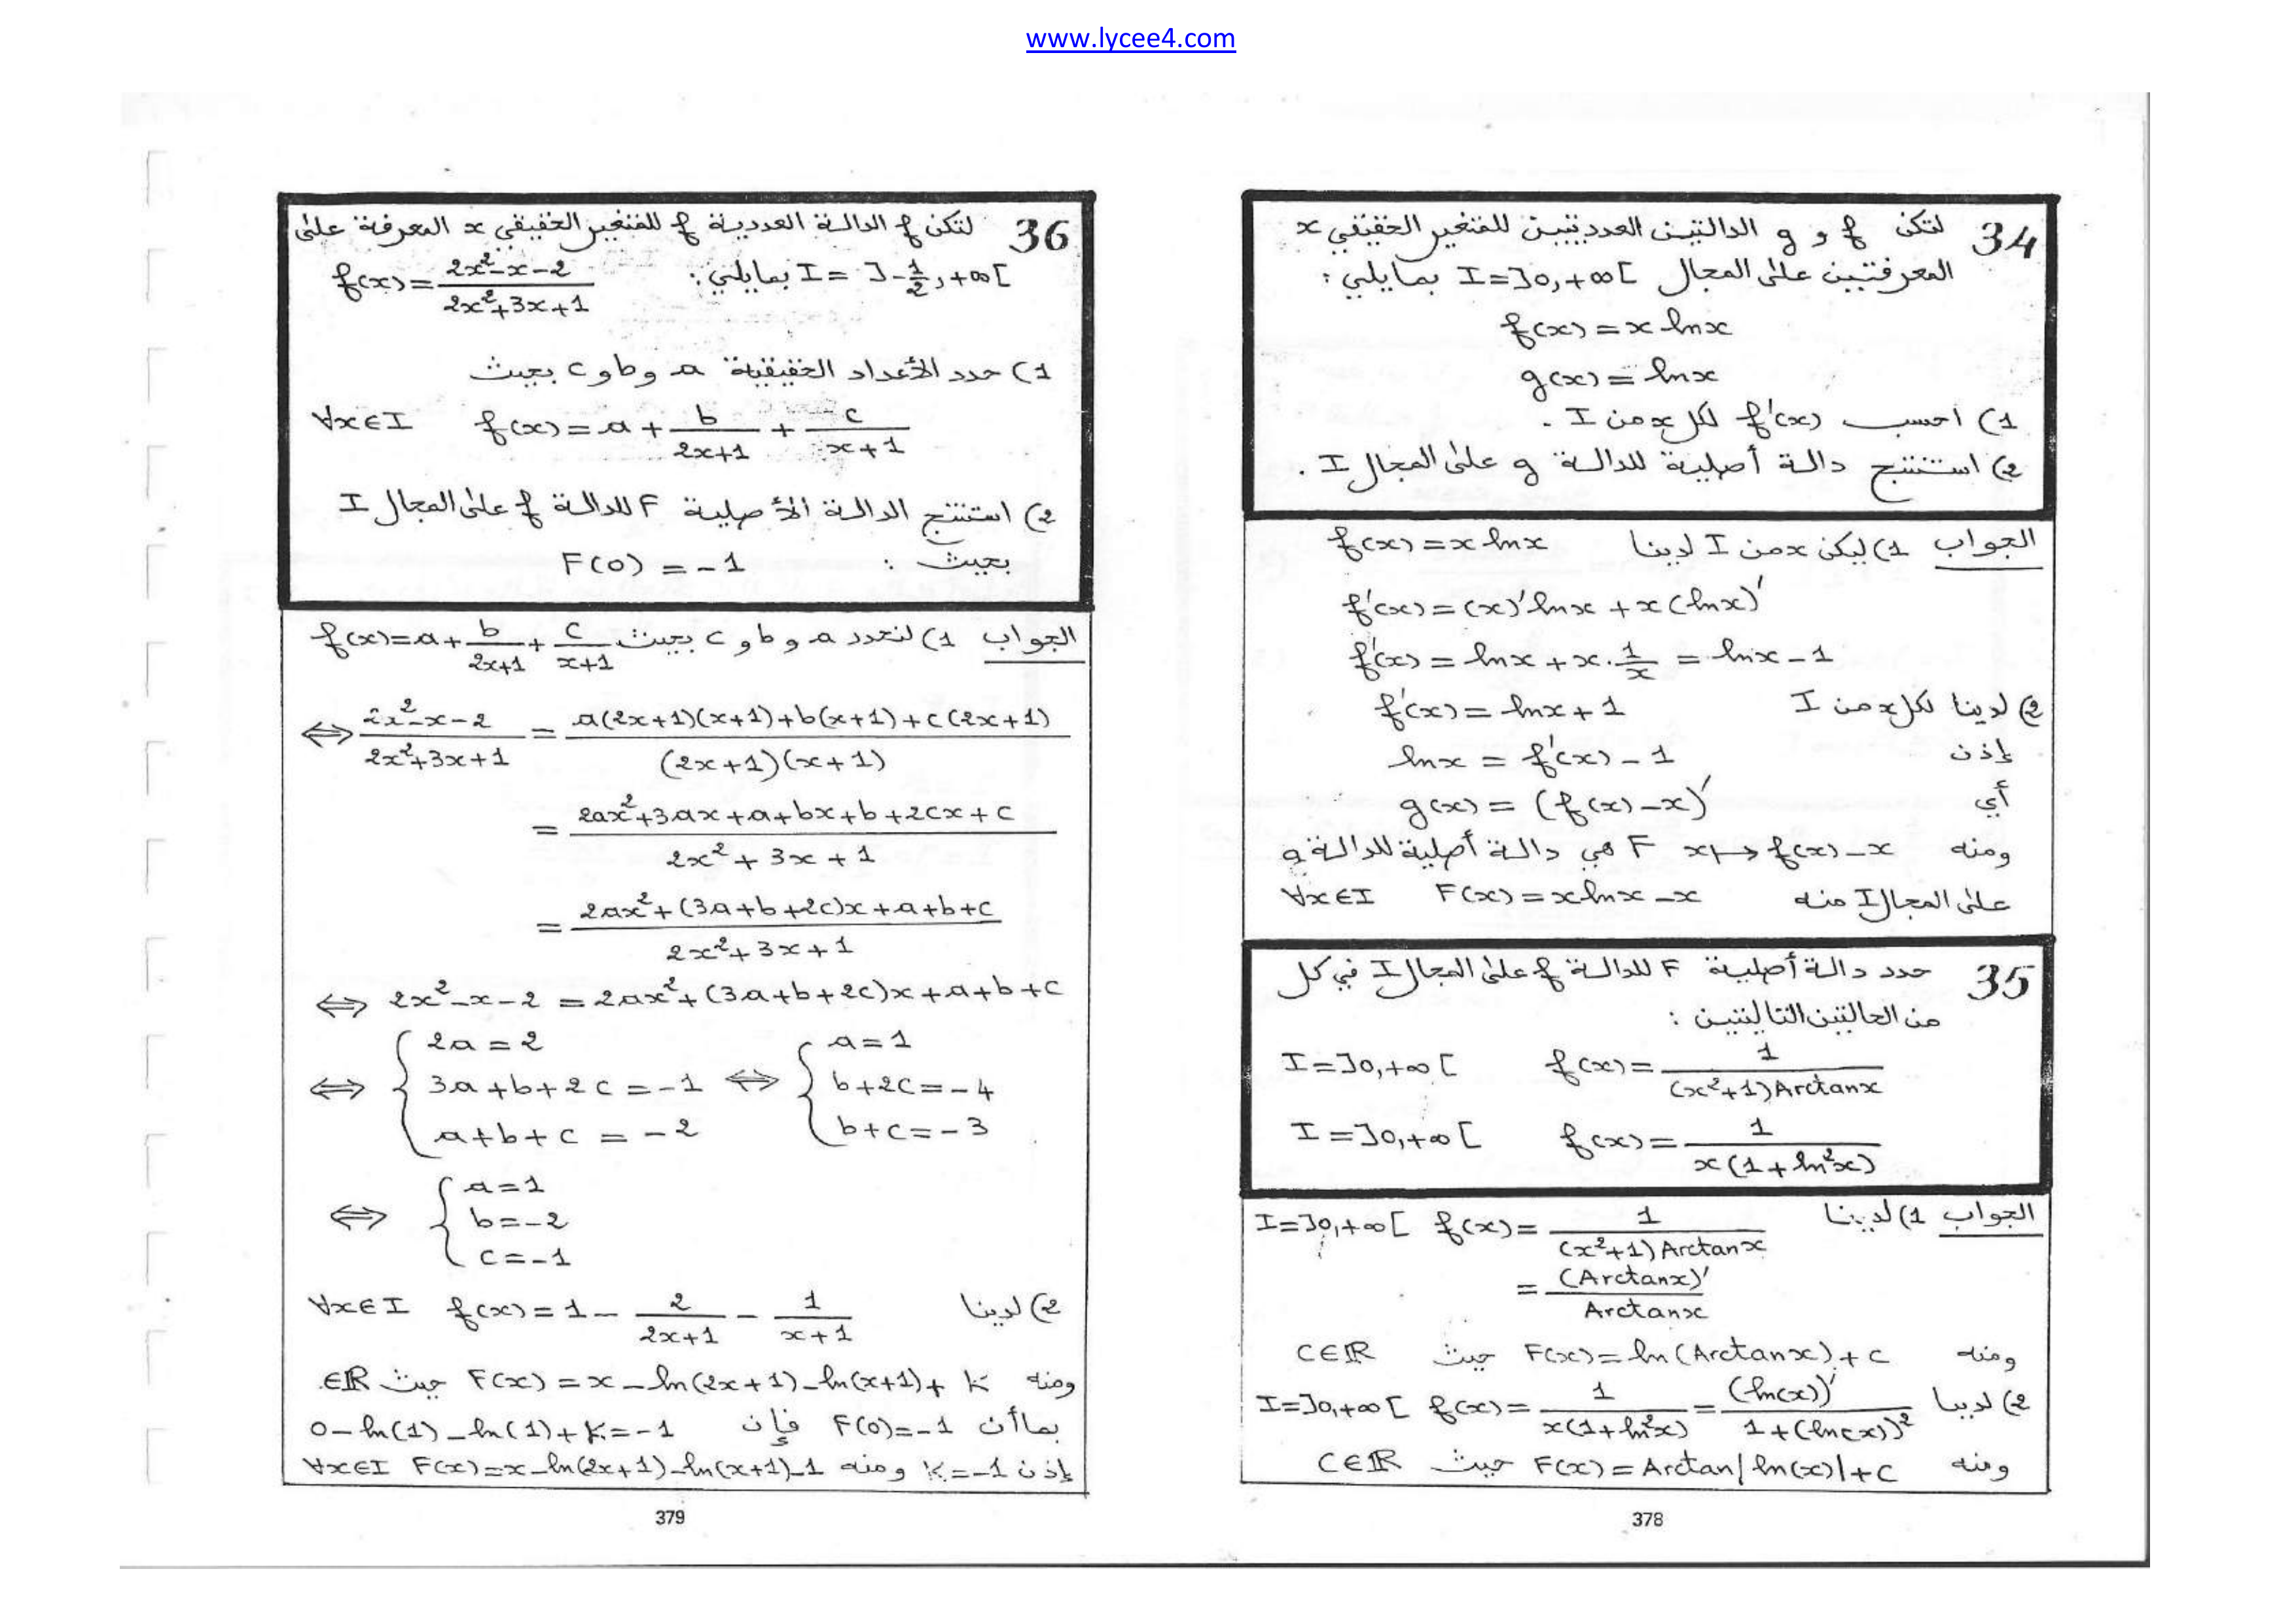 www.lycee4.com
34 لتكن f و g الدالتين العدديتين للمتغير الحقيقي x
المعرفتين على المجال I=]0,+∞[ بمايلي :
f(x) = x ln x
g(x) = ln x
1) احسب f'(x) لكل x من I .
2) استنتج دالة أصلية للدالة g على المجال I .
الجواب 1) ليكن x من I لدينا f(x) = x ln x
f'(x) = (x)' ln x + x (ln x)'
f'(x) = ln x + x . 1/x = ln x - 1
2) لدينا لكل x من I f'(x) = ln x + 1
إذن ln x = f'(x) - 1
أي g(x) = (f(x) - x)'
ومنه F x ↦ f(x) - x هي دالة أصلية للدالة g
على المجال I منه F(x) = x ln x - x ∀x∈I
35 حدد دالة أصلية F للدالة f على المجال I في كل
من الحالتين التاليتين :
I=]0,+∞[ f(x) = 1/((x²+1)Arctanx)
I=]0,+∞[ f(x) = 1/(x(1+ln²x))
الجواب 1) لدينا I=]0,+∞[ f(x) = 1/((x²+1)Arctanx)
= (Arctanx)'/Arctanx
ومنه F(x) = ln(Arctanx) + c حيث C∈ℝ
2) لدينا I=]0,+∞[ f(x) = 1/(x(1+ln²x)) = (ln(x))'/(1+(ln(x))²)
ومنه F(x) = Arctan|ln(x)| + C حيث C∈ℝ
378
36 لتكن f الدالة العددية f للمتغير الحقيقي x المعرفة على
I = ]-1/2, +∞[ بمايلي : f(x) = (2x²-x-2)/(2x²+3x+1)
1) حدد الأعداد الحقيقية a و b و c بحيث
∀x∈I f(x) = a + b/(2x+1) + c/(x+1)
2) استنتج الدالة الأصلية F للدالة f على المجال I
بحيث : F(0) = -1
الجواب 1) لنحدد a و b و c بحيث f(x) = a + b/(2x+1) + c/(x+1)
⇔ (2x²-x-2)/(2x²+3x+1) = (a(2x+1)(x+1)+b(x+1)+c(2x+1))/((2x+1)(x+1))
= (2ax²+3ax+a+bx+b+2cx+c)/(2x²+3x+1)
= (2ax²+(3a+b+2c)x+a+b+c)/(2x²+3x+1)
⇔ 2x²-x-2 = 2ax²+(3a+b+2c)x+a+b+c
⇔ { 2a = 2 ⇔ { a = 1
3a+b+2c = -1 b+2c = -4
a+b+c = -2 b+c = -3
⇔ { a = 1
b = -2
c = -1
2) لدينا ∀x∈I f(x) = 1 - 2/(2x+1) - 1/(x+1)
ومنه F(x) = x - ln(2x+1) - ln(x+1) + K حيث ∈ℝ.
بما أن F(0) = -1 فإن 0 - ln(1) - ln(1) + K = -1
إذن K = -1 ومنه ∀x∈I F(x) = x - ln(2x+1) - ln(x+1) - 1
379